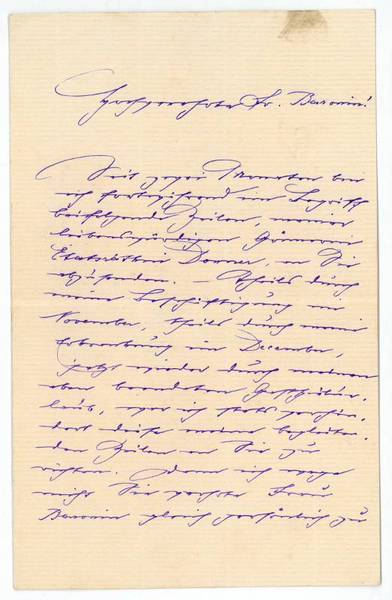 Hochverehrte Fr. Baronin!
Seit zwei Monaten bin
ich fortwährend im Begriff
beifolgende Zeilen, meiner
liebenswürdigen Gönnerin
Etatsräthin Donner, an Sie
abzusenden. – Theils durch
meine Beschäftigung im
November, theils durch meine
Erkrankung im December,
jetzt wieder durch meinen
eben beendeten
war ich stets verhin-
dert diese meine begleiten-
den Zeilen an Sie zu
richten. Denn ich wage
nicht Sie verehrte Frau
Baronin gleich persönlich zu